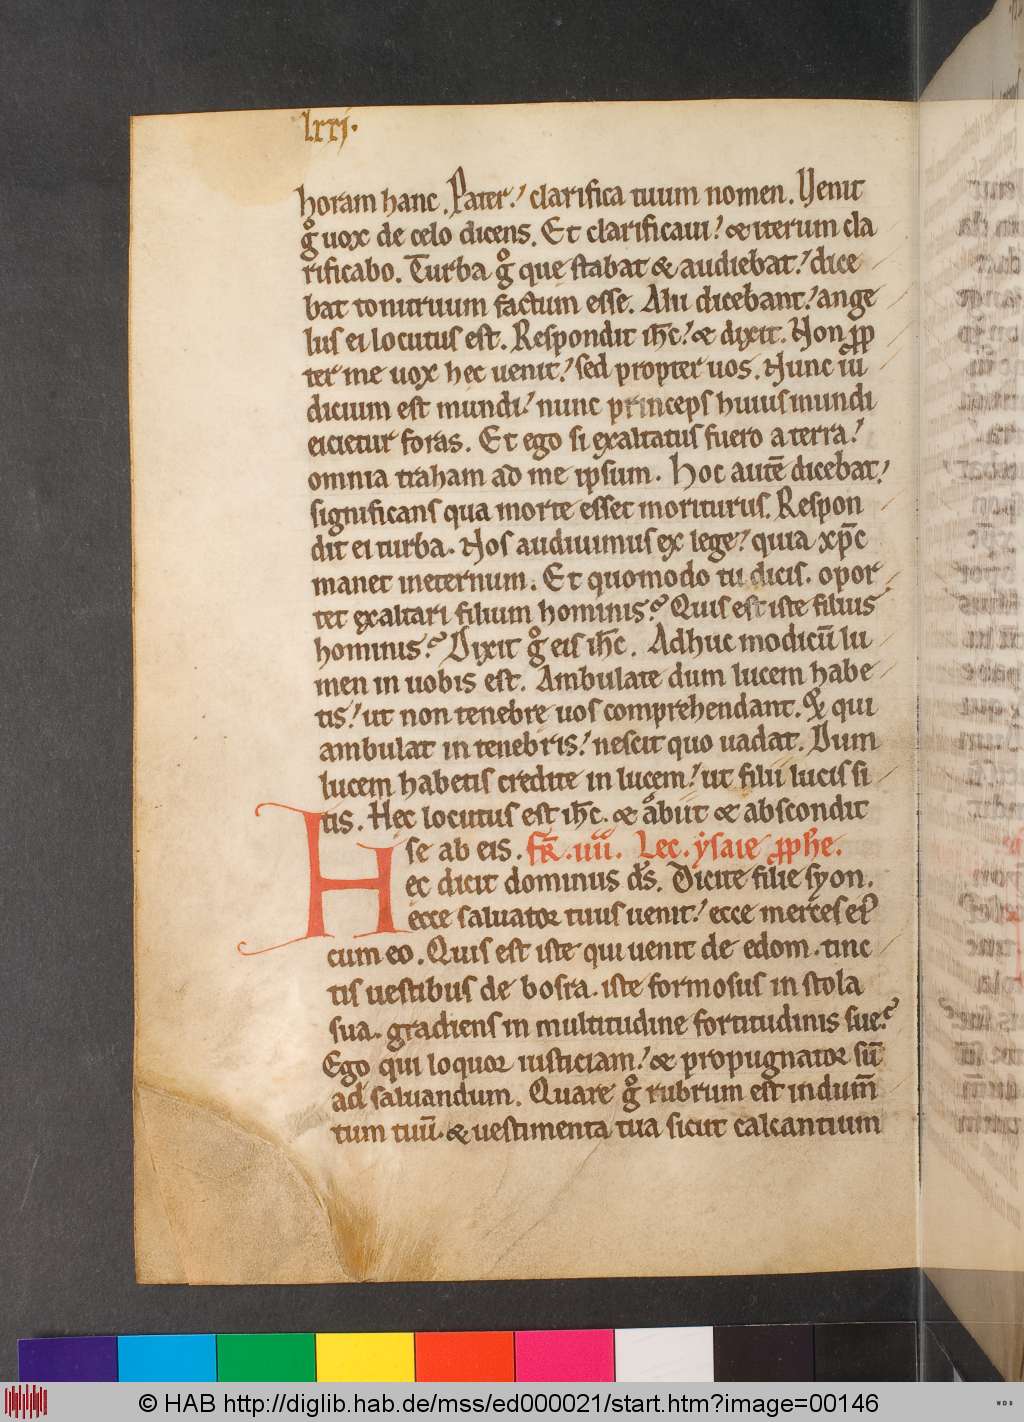 lxxj.
horam hanc. Pater! clarifica tuum nomen. Uenit
gͦ uox de celo dicens. Et clarificaui! & iterum cla
rificabo. Turba gͦ que stabat & audiebat! dice
bat tonitruum factum esse. Alii dicebant! ange
lus ei locutus est. Respondit ih̅c! & dixit. Non ꝓp
ter me uox hec uenit! sed propter uos. Nunc iu̅
dicium est mundi! nunc princeps huius mundi
eicietur foras. Et ego si exaltatus fuero a terra!
omnia traham ad me ipsum. Hoc aute̅ dicebat!
significans qua morte esset moriturus. Respon
dit ei turba. Nos audiuimus ex lege! quia xp̅c
manet ineternum. Et quomodo tu dicis. opor
tet exaltari filium hominis? Quis est iste filius
hominis? Dixit gͦ eis ih̅c. Adhuc modicu̅ lu
men in uobis est. Ambulate dum lucem habe
tis! ut non tenebre uos comprehendant. & qui
ambulat in tenebris! nescit quo uadat. Dum
lucem habetis credite in lucem! ut filii lucis si
tis. Hec locutus est ih̅c. & abiit & abscondit
se ab eis. fr̅. iiii. Lec. ysaie ꝓphe.
Hec dicit dominus ds̅. Dicite filie syon.
ecce saluator tuus uenit! ecce merces ei᾽
cum eo. Quis est iste qui uenit de edom. tinc
tis uestibus de bosra. iste formosus in stola
sua. gradiens in multitudine fortitudinis sue?
Ego qui loquor iusticiam! & propugnator su̅
ad saluandum. Quare gͦ rubrum est indum̅
tum tuu̅. & uestimenta tua sicut calcantium
© HAB http://diglib.hab.de/mss/ed000021/start.htm?image=00146